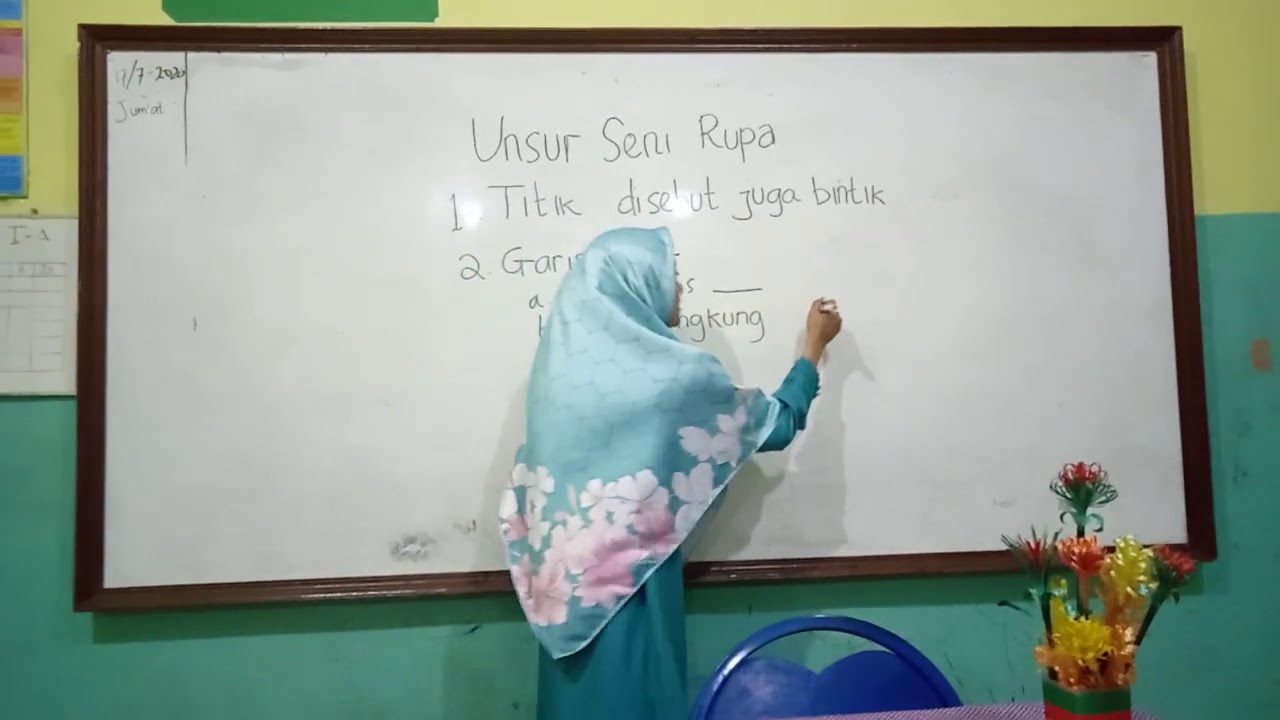 17/7-2020
Jum'at
Unsur Seni Rupa
1. Titik disebut juga bintik
2. Garis
a
I-A